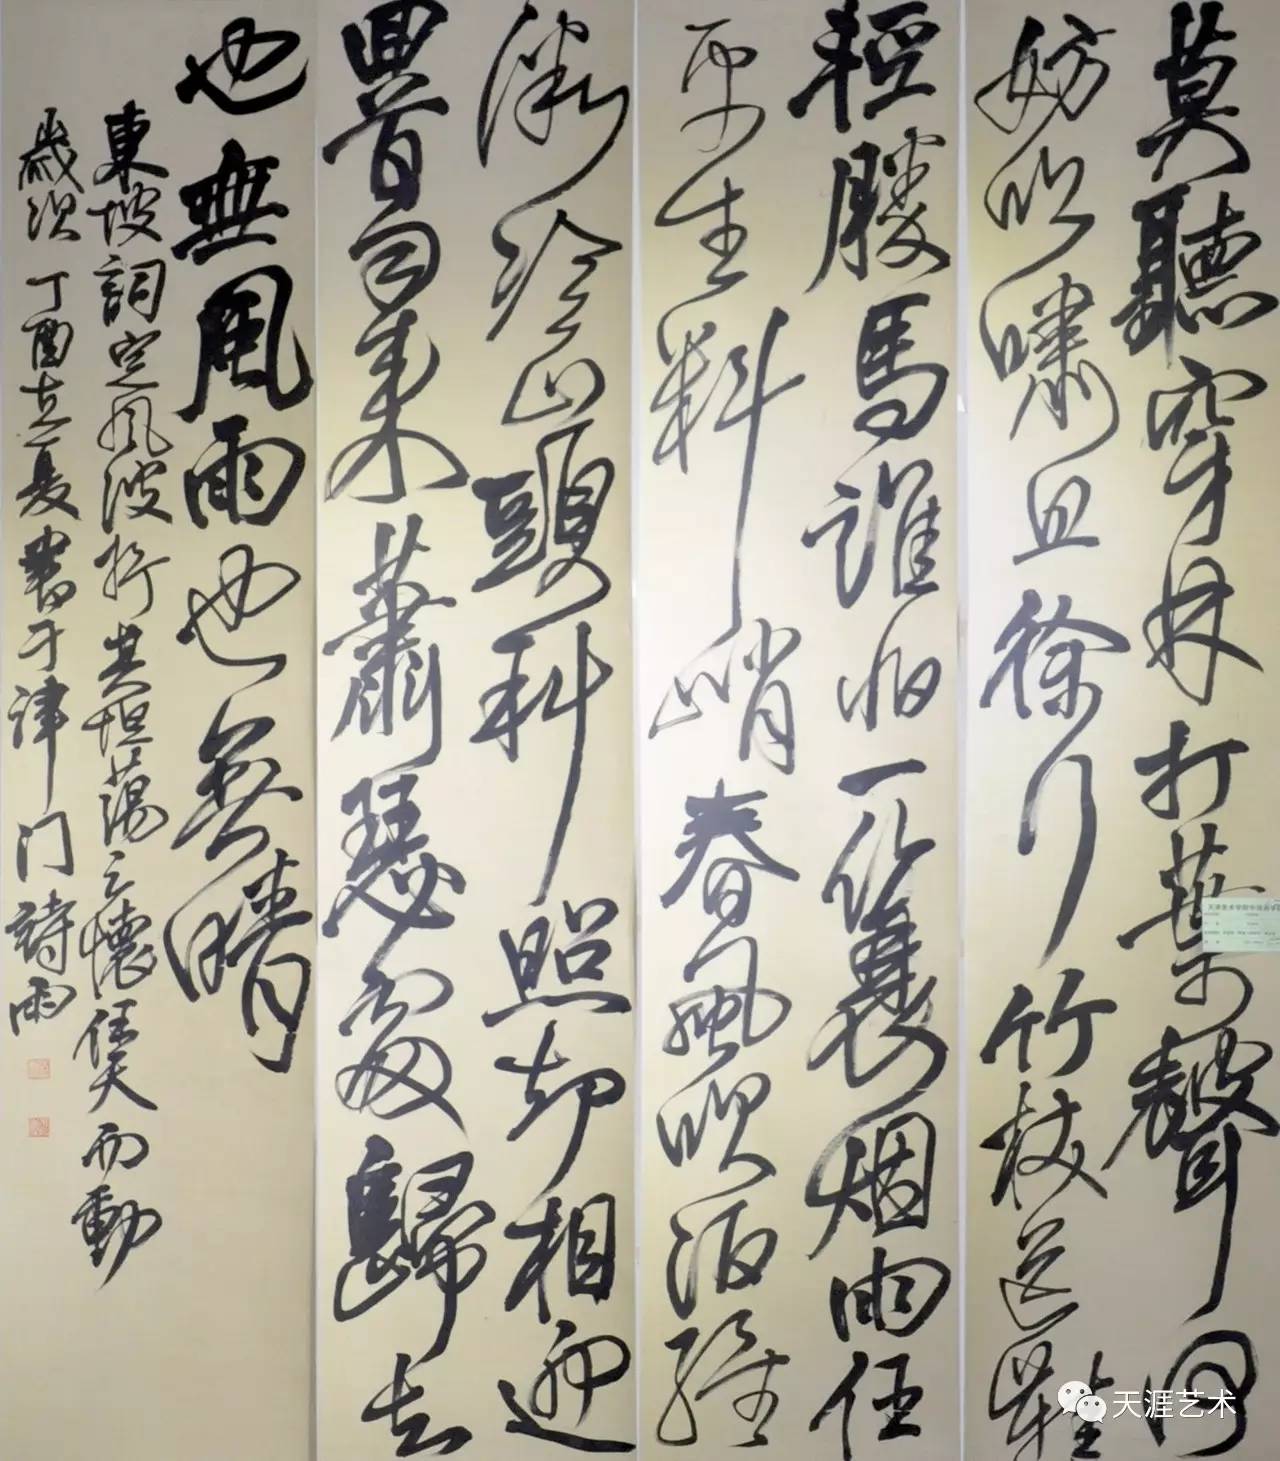 莫聽穿林打葉聲何
妨吟嘯且徐行竹杖芒鞋
輕勝馬誰怕一簑烟雨任
平生料峭春風吹酒醒
微冷山頭斜照却相迎
回首向來蕭瑟處歸去
也無風雨也無晴
東坡詞定風波抒其坦蕩之懷任天而動
歲次丁酉立夏書于津门詩雨
天涯艺术